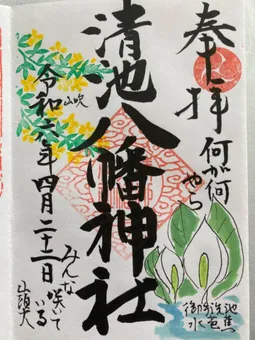 奉拝
何が何
やら
清池八幡神社
山吹
令和六年四月二十一日
みんな
咲いて
いる
山頭火
御手洗池
水芭蕉